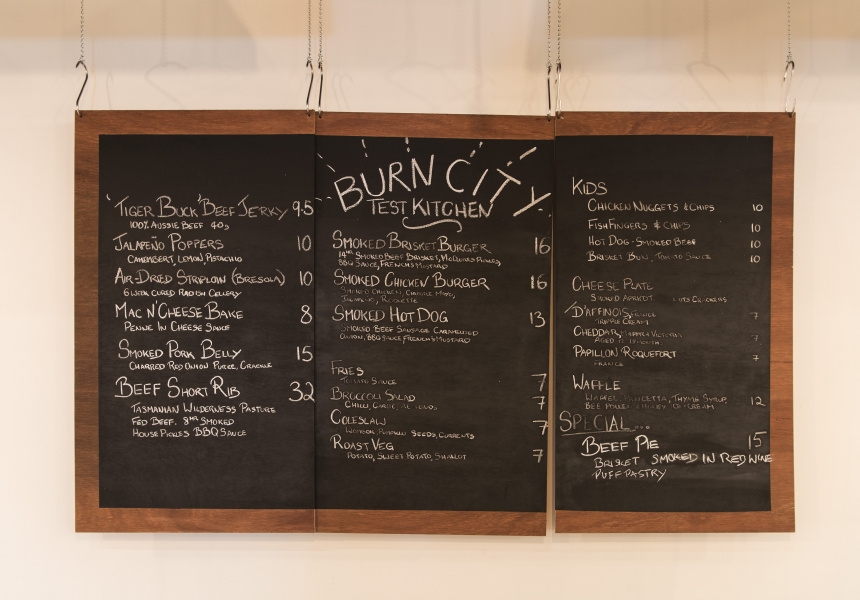 'Tiger Buck' Beef Jerky 9.5
100% Aussie Beef 40g
Jalapeño Poppers 10
Camembert, Lemon, Pistachio
Air-Dried Striploin (Bresola) 10
6 Week Cured Radish Cellery
Mac N' Cheese Bake 8
Penne In Cheese Sauce
Smoked Pork Belly 15
Charred Red Onion Puree, Crackle
Beef Short Rib 32
Tasmanian Wilderness Pasture
Fed Beef. 8hr Smoked
House Pickles BBQ Sauce
Burn City
Test Kitchen
Smoked Brisket Burger 16
14hr Smoked Beef Brisket, McClures Pickles,
BBQ Sauce, French's Mustard
Smoked Chicken Burger 16
Smoked Chicken, Chipotle Mayo,
Jalapeno, Roquette
Smoked Hot Dog 13
Smoked Beef Sausage Carmelized
Onion, BBQ Sauce, French's Mustard
Fries 7
Tomato Sauce
Broccoli Salad 7
Chilli, Garlic, Almonds
Coleslaw 7
Wombok, Pumpkin Seeds, Currants
Roast Veg 7
Potato, Sweet Potato, Shallot
Kids
Chicken Nuggets & Chips 10
Fish Fingers & Chips 10
Hot Dog - Smoked Beef 10
Brisket Bun, Tomato Sauce 10
Cheese Plate
Smoked Apricot Crackers
D'Affinois, France 7
Triple Cream
Cheddar, Maffra Victoria 7
Aged
Papillon Roquefort 7
France
Waffle
Waffel, Pancetta, Thyme Syrup, 12
Bee Pollen Ice-Cream
Special...
Beef Pie 15
Brisket Smoked in Red Wine
Puff Pastry